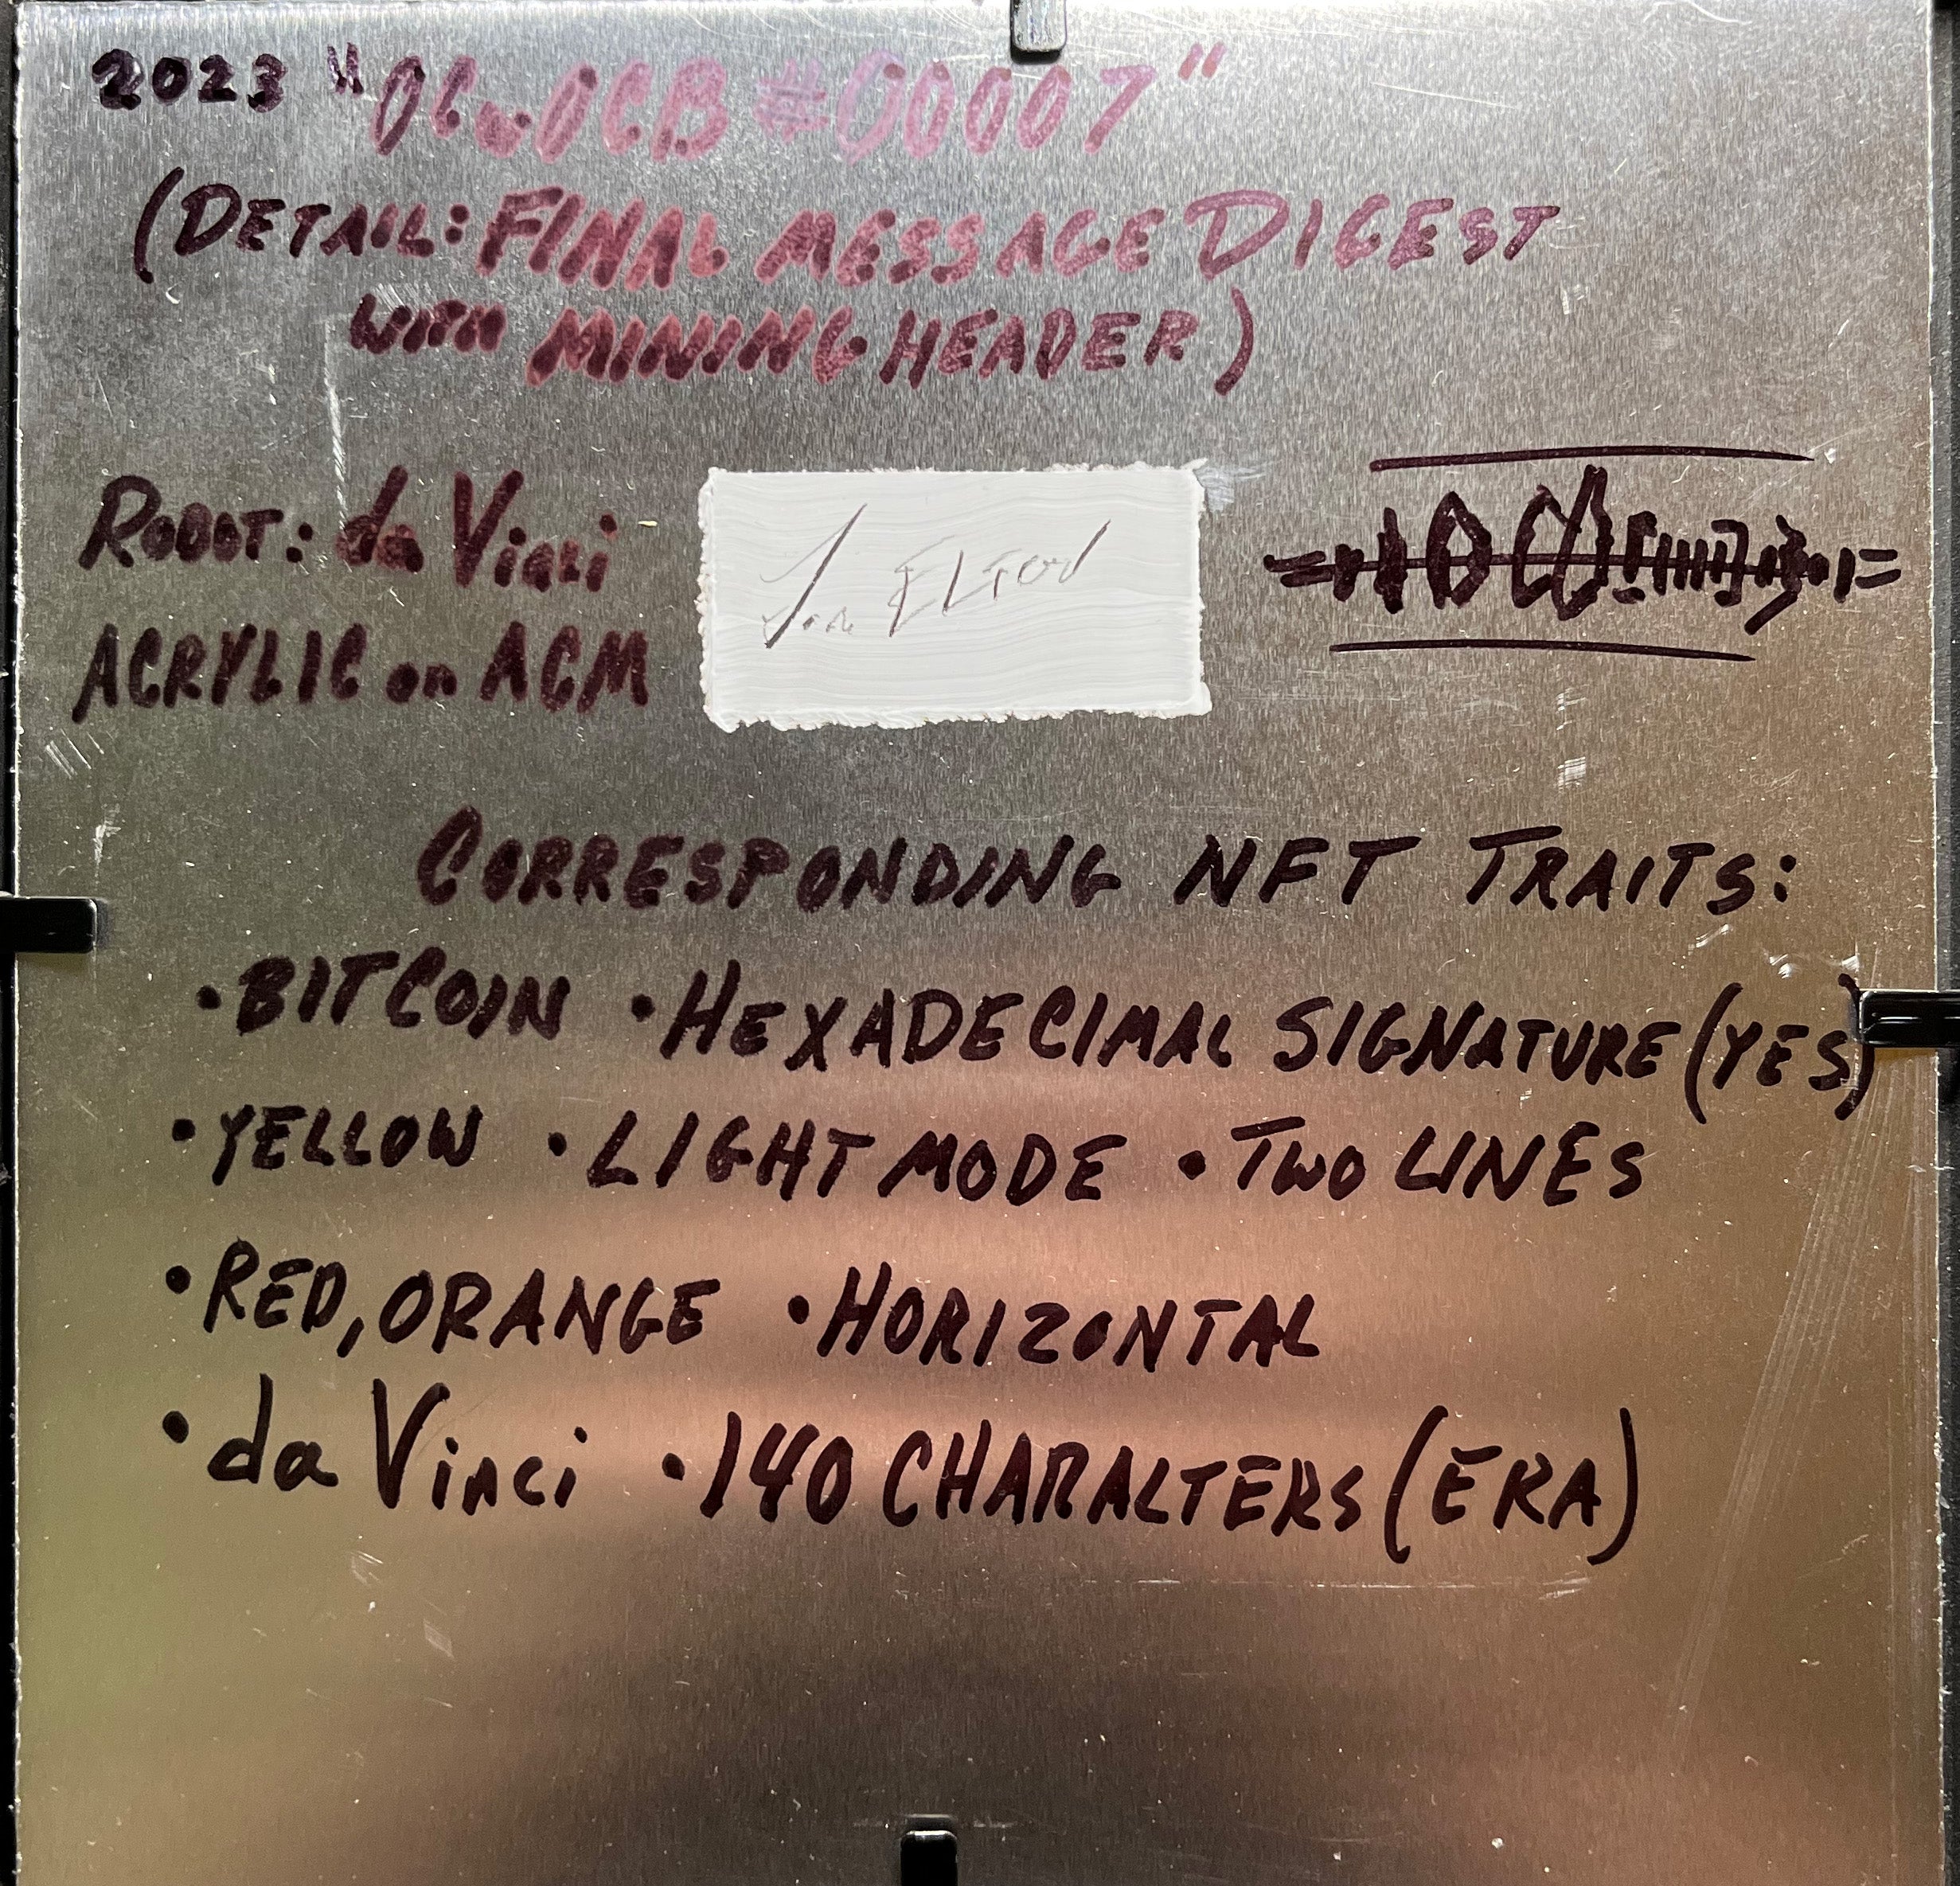 2023 "OCwOCB #00007"
(DETAIL: FINAL MESSAGE DIGEST
WITH MINING HEADER)
ROBOT: da Vinci
ACRYLIC on ACM
CORRESPONDING NFT TRAITS:
• BITCOIN • HEXADECIMAL SIGNATURE (YES)
• YELLOW • LIGHT MODE • TWO LINES
• RED, ORANGE • HORIZONTAL
• da Vinci • 140 CHARACTERS (ERA)